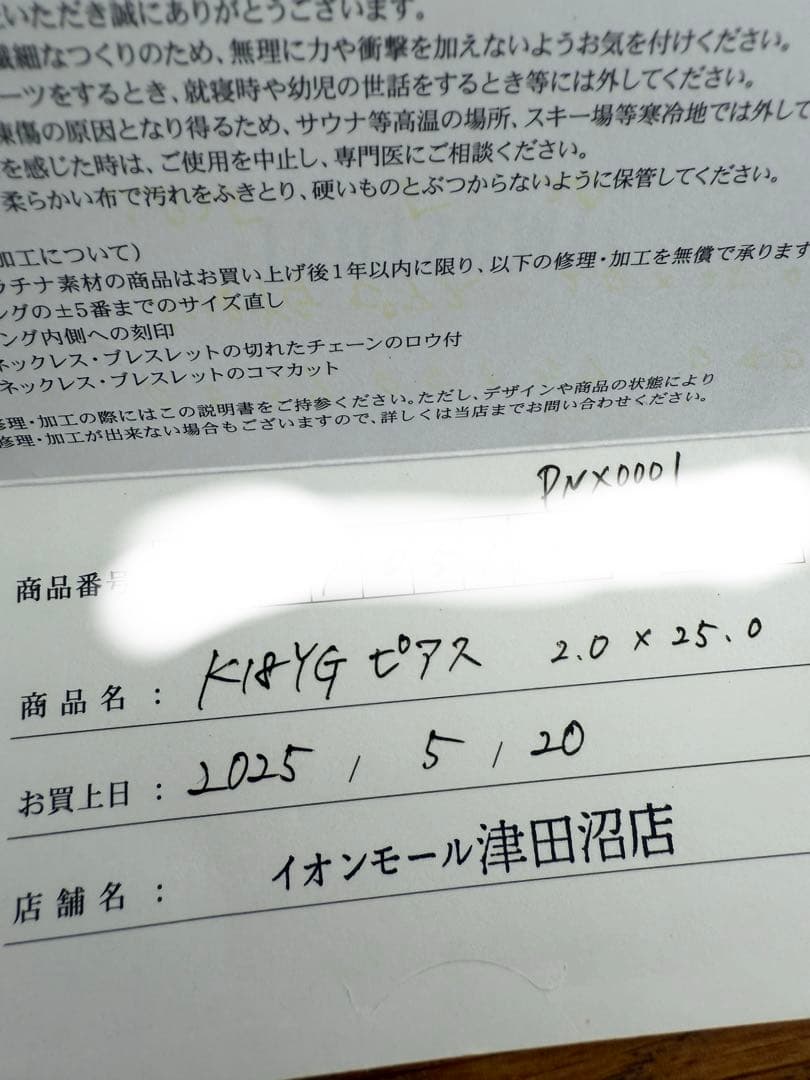 いただき誠にありがとうございます。
繊細なつくりのため、無理に力や衝撃を加えないようお気を付けください。
ーツをするとき、就寝時や幼児の世話をするとき等には外してください。
凍傷の原因となり得るため、サウナ等高温の場所、スキー場等寒冷地では外して
を感じた時は、ご使用を中止し、専門医にご相談ください。
柔らかい布で汚れをふきとり、硬いものとぶつからないように保管してください。
加工について)
ラチナ素材の商品はお買い上げ後1年以内に限り、以下の修理・加工を無償で承ります
ングの±5番までのサイズ直し
ング内側への刻印
ネックレス・ブレスレットの切れたチェーンのロウ付
ネックレス・ブレスレットのコマカット
修理・加工の際にはこの説明書をご持参ください。ただし、デザインや商品の状態により
修理・加工が出来ない場合もございますので、詳しくは当店までお問い合わせください。
PNX0001
商品番号
商品名: K18YG ピアス 2.0×25.0
お買上日: 2025, 5, 20
店舗名: イオンモール津田沼店